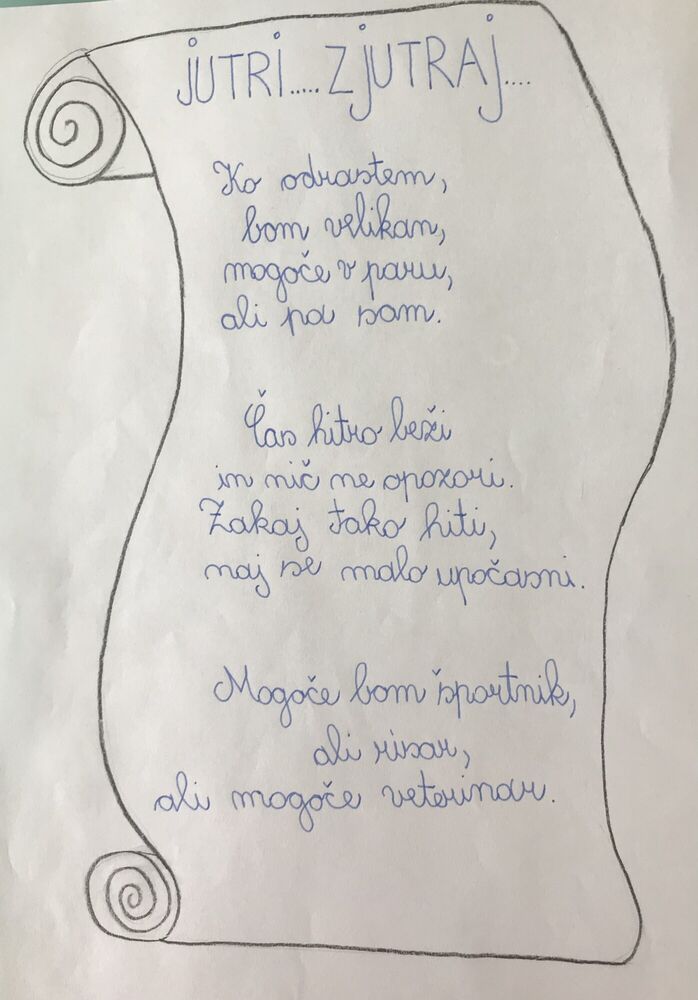 JUTRI..... ZJUTRAJ....
Ko odrastem,
bom velikan,
mogoče v paru,
ali pa sam.
Čas hitro beži
in nič ne opozori.
Zakaj tako hiti,
naj se malo upočasni.
Mogoče bom športnik,
ali risar,
ali mogoče veterinar.